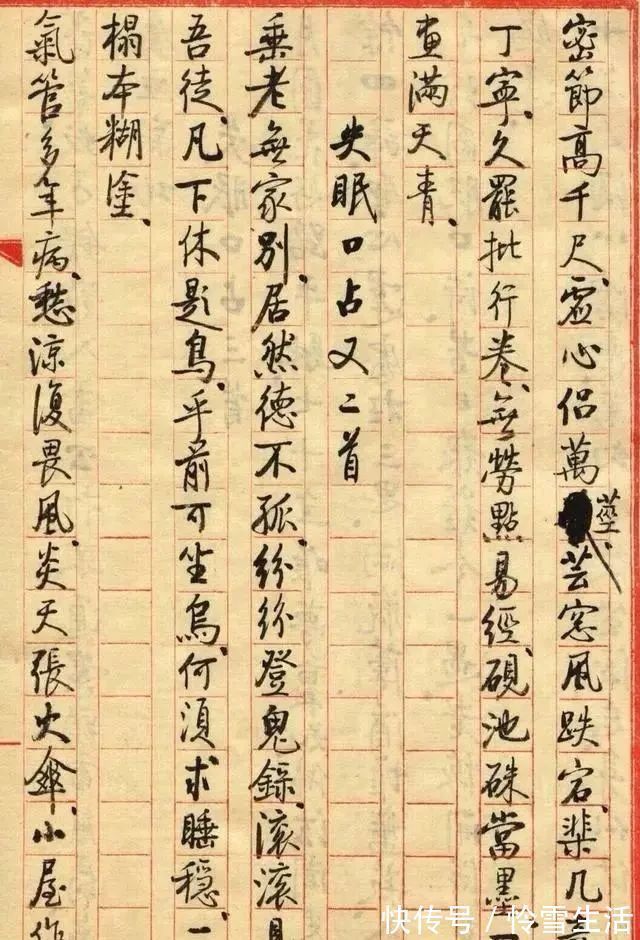 密節高千尺、虛心侣萬莖、芸窓風跌宕、棐几
丁寧、久罷批行卷、無勞點易經、硯池硃當墨、
畫滿天青、
失眠口占又二首
垂老無家别、居然德不孤、紛紛登鬼錄、滚滚
吾徒、凡下休題鳥、乎前可坐烏、何須求睡穩、一
榻本糊塗、
氣管多年病、愁凉復畏風、炎天張火傘、小屋作
快传号/怜雪生活